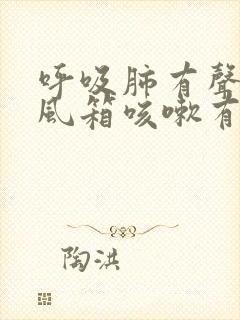 呼吸肺有聲
風箱咳嗽有
陶洪